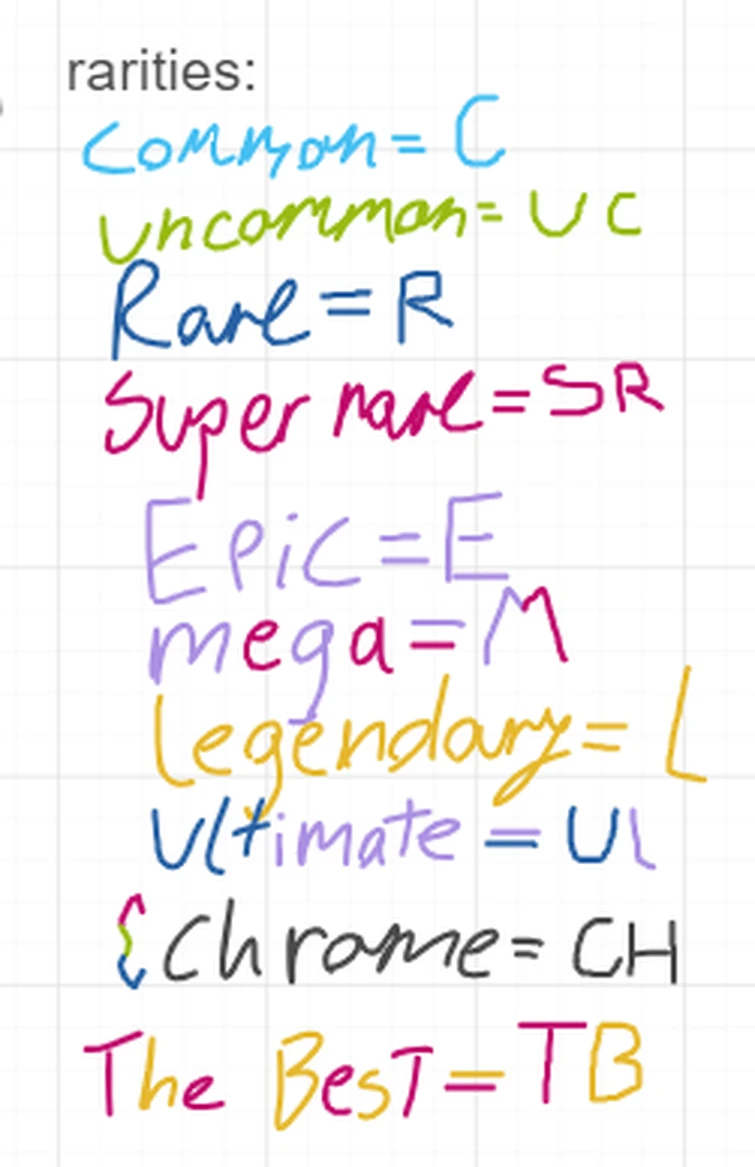 rarities:
Common = C
uncommon = UC
Rare = R
Super rare = SR
Epic = E
mega = M
legendary = L
Ultimate = UL
{ Chrome = CH
The BesT = TB